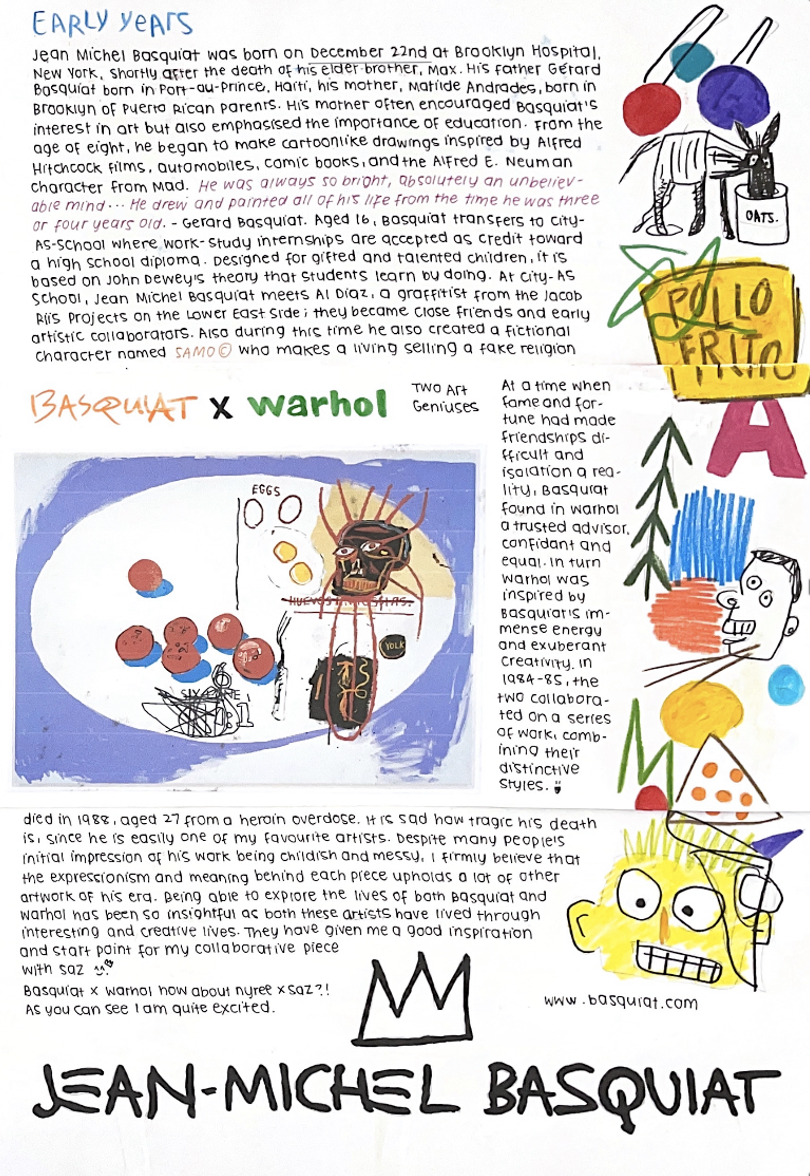 EARLY YEARS
Jean Michel Basquiat was born on December 22nd at Brooklyn Hospital,
New York, shortly after the death of his elder brother, Max. His father Gérard
Basquiat born in Port-au-Prince, Haiti, his mother, Matilde Andrades, born in
Brooklyn of Puerto Rican parents. His mother often encouraged Basquiat's
interest in art but also emphasised the importance of education. From the
age of eight, he began to make cartoonlike drawings inspired by Alfred
Hitchcock films, automobiles, comic books, and the Alfred E. Neuman
character from Mad. He was always so bright, absolutely an unbeliev-
able mind... He drew and painted all of his life from the time he was three
or four years old. - Gerard Basquiat. Aged 16, Basquiat transfers to City-
As-School where work-study internships are accepted as credit toward
a high school diploma. Designed for gifted and talented children, it is
based on John Dewey's theory that students learn by doing. At City-AS
School, Jean Michel Basquiat meets Al Diaz, a graffitist from the Jacob
Riis Projects on the Lower East Side; they became close friends and early
artistic collaborators. Also during this time he also created a fictional
character named SAMO© who makes a living selling a fake religion
OATS.
POLLO
FRITO
A
BASQUIAT x warhol
TWO Art
Geniuses
At a time when
fame and for-
tune had made
friendships di-
fficult and
isolation a rea-
lity, Basquiat
found in Warhol
a trusted advisor,
confidant and
equal. In turn
Warhol was
inspired by
Basquiat's im-
mense energy
and exuberant
creativity. In
1984-85, the
two collabora-
ted on a series
of work, comb-
ining their
distinctive
styles.
EGGS
YOLK
M
died in 1988, aged 27 from a heroin overdose. It is sad how tragic his death
is, since he is easily one of my favourite artists. Despite many people's
initial impression of his work being childish and messy, I firmly believe that
the expressionism and meaning behind each piece upholds a lot of other
artwork of his era. Being able to explore the lives of both Basquiat and
Warhol has been so insightful as both these artists have lived through
interesting and creative lives. They have given me a good inspiration
and start point for my collaborative piece
with saz
Basquiat x warhol how about nyree x saz?!
As you can see I am quite excited.
www.basquiat.com
JEAN-MICHEL BASQUIAT